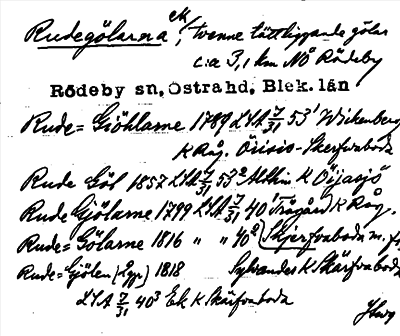 Rudegölarna ek, tvenne tättliggande gölar
c:a 3,1 km NÖ Rödeby
Rödeby sn, Östra hd, Blek. län
Rude= Giöhlarne 1789 LSA 7/31 53¹ Wickenberg
K Råg. Örisis-Skerfvaboda
Rude Göl 1857 LSA 7/31 53² Allmn K Öijasjö
Rude Gjölarne 1799 LSA 7/31 40¹ Trägård K Råg.
Rude= Gölarne 1816 " " 40² Skjerfvaboda m. fl
Rude= Gjölen (Ägor) 1818 Sylvander K Skärfvaboda
LSA 7/31 40³ Ek K Skärfvaboda